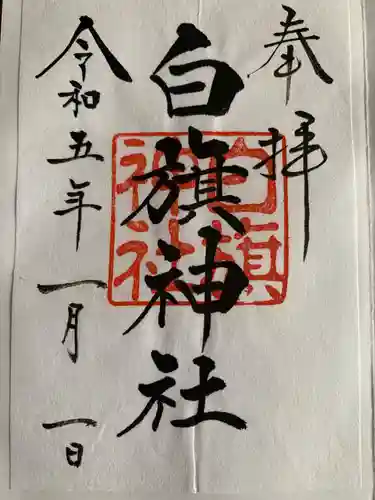 奉拝
白旗神社
白旗
神社
令和五年一月一日